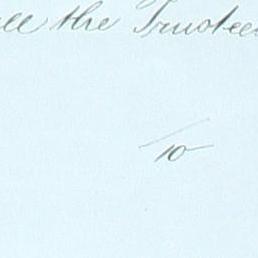 the Trustees
10